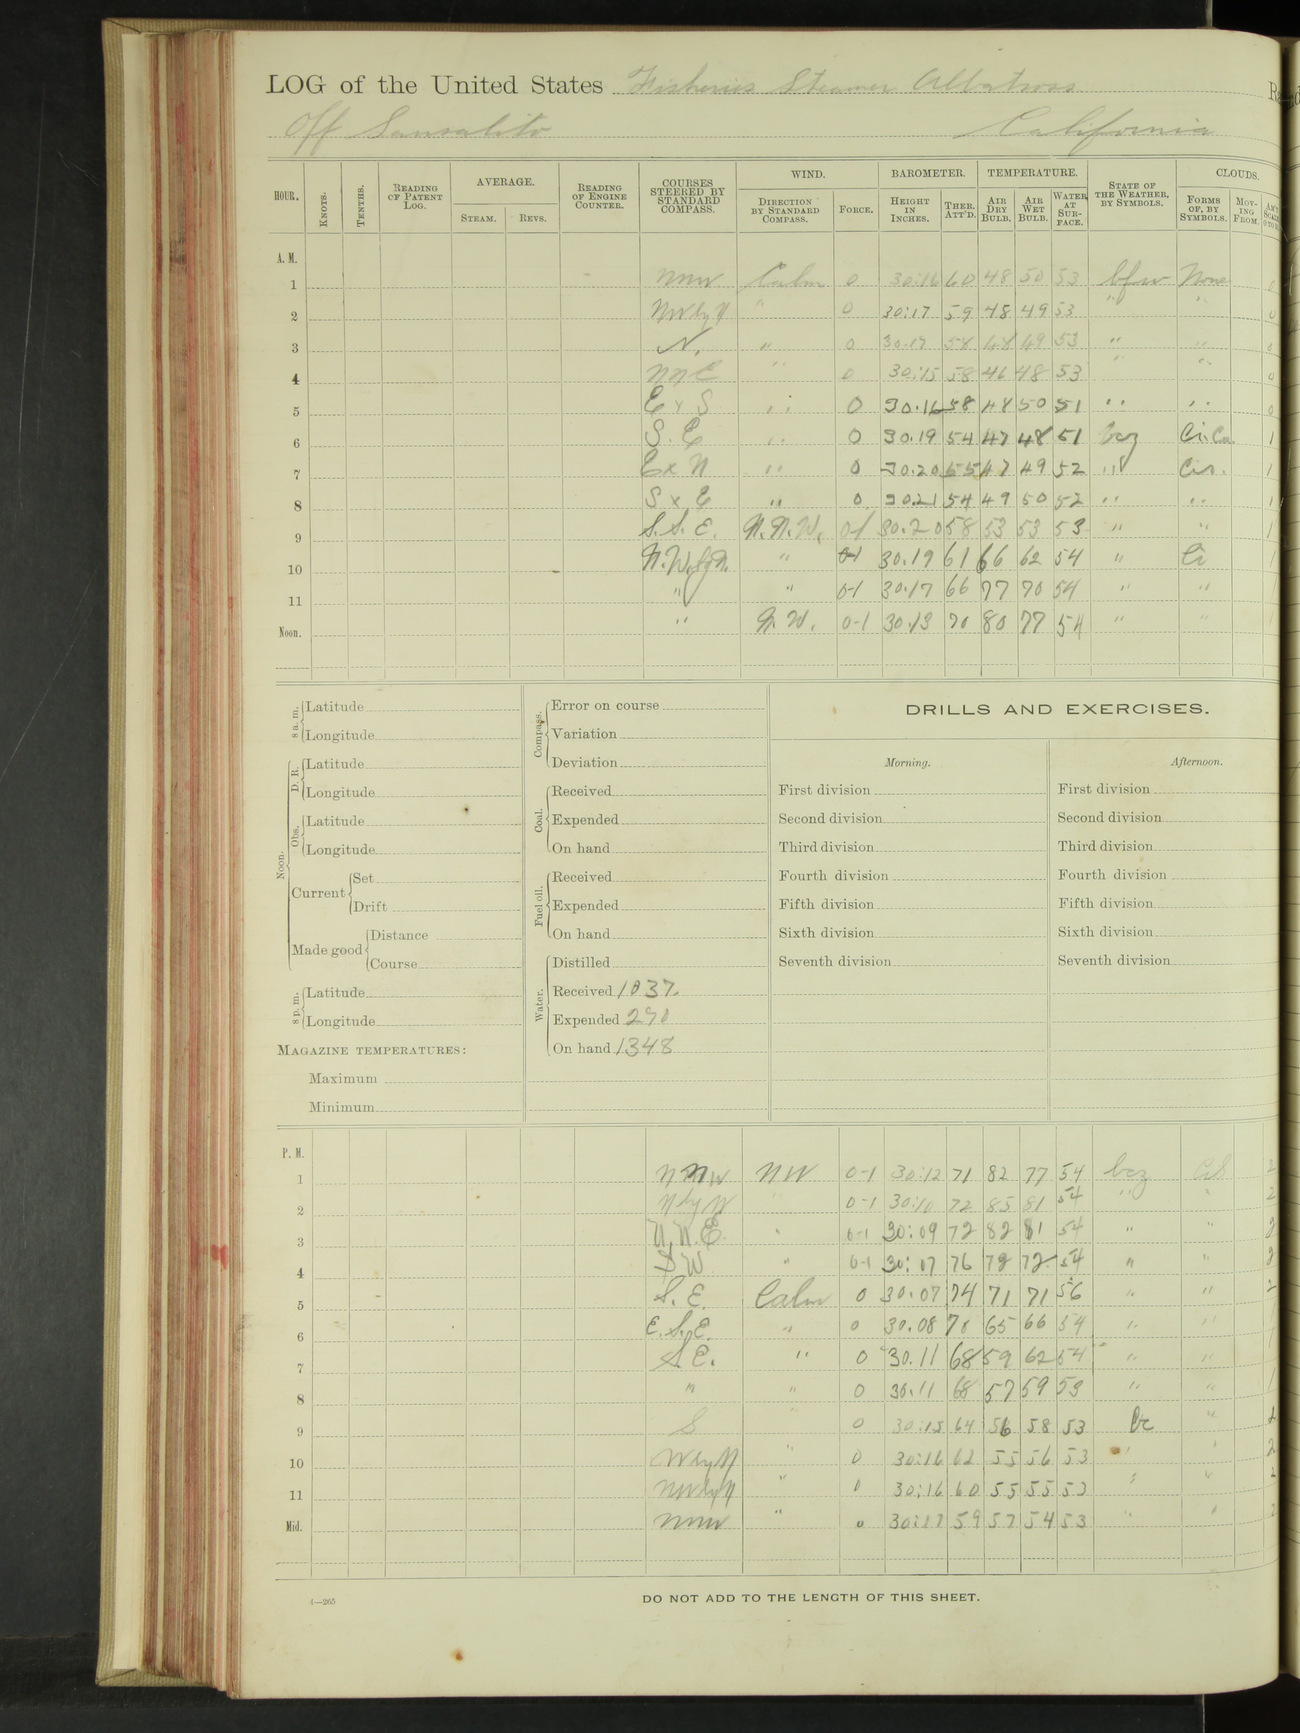 LOG of the United States Fisheries Steamer Albatross
Off Sausalito California
HOUR. KNOTS. TENTHS. READING OF PATENT LOG. AVERAGE. STEAM. REVS. READING OF ENGINE COUNTER. COURSES STEERED BY STANDARD COMPASS. WIND. DIRECTION BY STANDARD COMPASS. FORCE. BAROMETER. HEIGHT IN INCHES. THER. ATT'D. TEMPERATURE. AIR DRY BULB. AIR WET BULB. WATER AT SURFACE. STATE OF THE WEATHER, BY SYMBOLS. CLOUDS. FORMS OF, BY SYMBOLS. MOVING FROM.
A. M.
1 NNW Calm 0 30:16 60 48 50 53 bfw None 0
2 NWbyN " 0 30:17 59 48 49 53 " " 0
3 N. " 0 30.17 58 48 49 53 " " 0
4 NNE " 0 30:15 58 46 48 53 " " 0
5 E x S " 0 30.16 58 48 50 51 " " 0
6 S. E " 0 30.19 54 47 48 51 bcz Ci.Cu. 1
7 E x N " 0 30.20 55 47 49 52 " Cis. 1
8 S x E " 0 30.21 54 49 50 52 " " 1
9 S.S.E. N.N.W. 0-1 30.20 58 53 53 53 " " 1
10 N.W.byN. " 0-1 30.19 61 66 62 54 " Ci 1
11 " " 0-1 30.17 66 77 70 54 " "
Noon. " N.W. 0-1 30.13 70 80 77 54 " "
8 a. m. Latitude
Longitude
Noon. D. R. Latitude
Longitude
Obs. Latitude
Longitude
Current Set
Drift
Made good Distance
Course
8 p. m. Latitude
Longitude
MAGAZINE TEMPERATURES:
Maximum
Minimum
Compass. Error on course
Variation
Deviation
Coal. Received
Expended
On hand
Fuel oil. Received
Expended
On hand
Water. Distilled
Received 1037.
Expended 290
On hand 1348
DRILLS AND EXERCISES.
Morning. Afternoon.
First division First division
Second division Second division
Third division Third division
Fourth division Fourth division
Fifth division Fifth division
Sixth division Sixth division
Seventh division Seventh division
P. M.
1 NNW NW 0-1 30:12 71 82 77 54 bcz 2
2 NbyW " 0-1 30:10 72 85 81 54 " " 2
3 N.N.E. " 0-1 30:09 72 82 81 54 " " 2
4 SW " 0-1 30:07 76 78 72 54 " " 2
5 S. E. Calm 0 30.07 74 71 71 56 " " 2
6 E.S.E. " 0 30.08 70 65 66 54 " " 1
7 S.E. " 0 30.11 68 59 62 54 " " 1
8 " " 0 30.11 68 57 59 53 " " 1
9 S " 0 30:15 64 56 58 53 bc "
10 WbyN " 0 30:16 62 55 56 53 " " 2
11 NWbyN " 0 30:16 60 55 55 53 " " 2
Mid. NNW " 0 30:17 59 57 54 53 " " 2
1—265
DO NOT ADD TO THE LENGTH OF THIS SHEET.